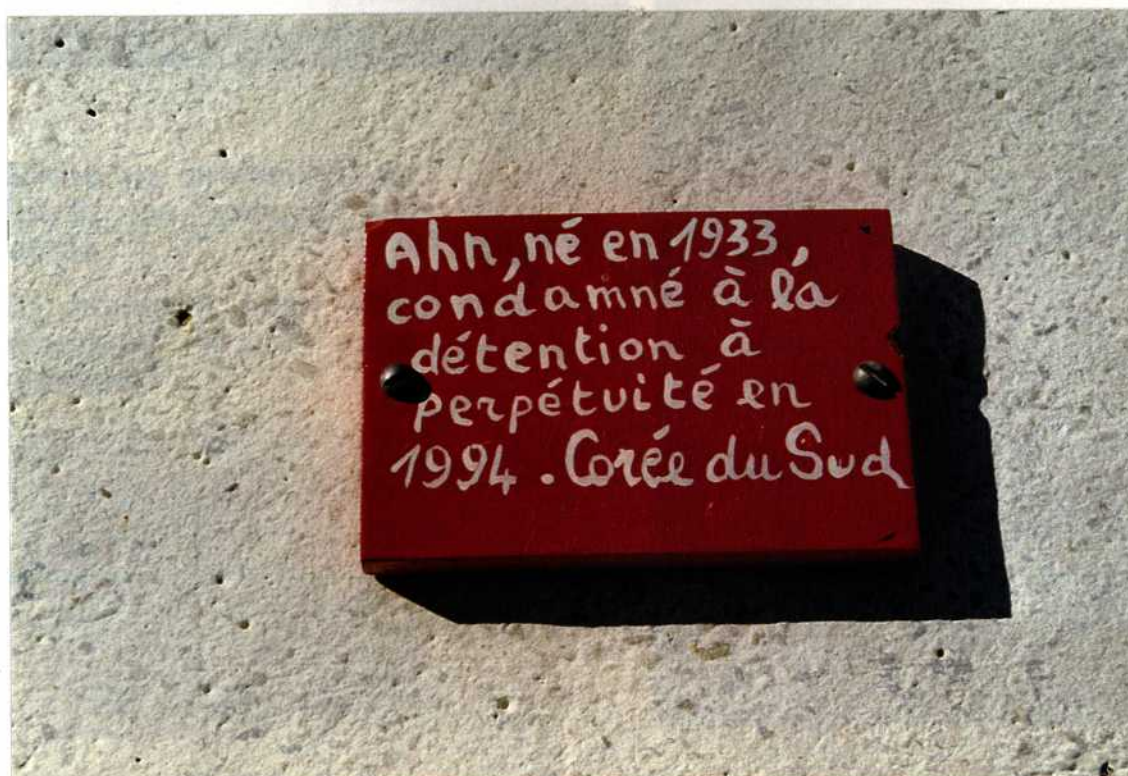 Ahn, né en 1933,
condamné à la
détention à
perpétuité en
1994. Corée du Sud